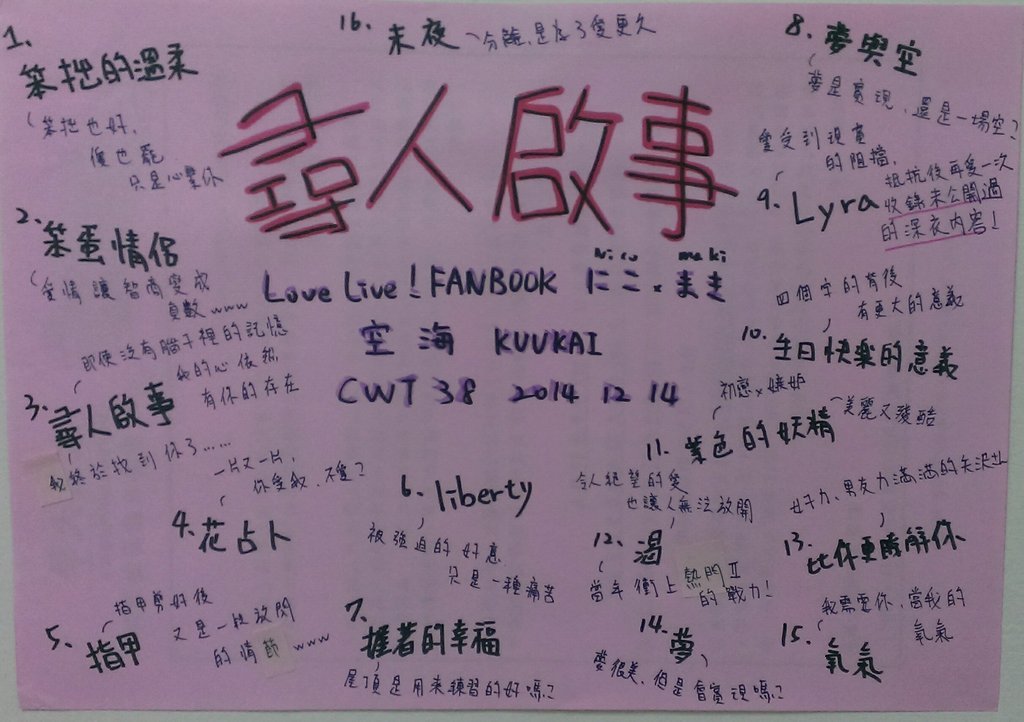 尋人啟事
Nico maki
Love Live! FANBOOK にこ×まき
空海 KUUKAI
CWT 38 2014 12 14
1.
笨拙的溫柔
笨拙也好,
傻也罷
只是心繫你
2.
笨蛋情侶
愛情讓智商變成
負數www
即使沒有腦子裡的記憶
我的心依然
有你的存在
3. 尋人啟事
我終於找到你了……
一片又一片,
你愛我、不愛?
4. 花占卜
指甲剪好後
又是一段放閃
的情節www
5. 指甲
6. liberty
被強迫的好意
只是一種痛苦
7.
握著的幸福
屋頂是用來練習的好嗎?
8. 夢與空
夢是實現、還是一場空?
愛受到現實
的阻擋,
抵抗後再愛一次
9. Lyra
收錄未公開過
的深夜內容!
四個字的背後
有更大的意義
10. 生日快樂的意義
初戀×嫉妒
美麗又殘酷
11. 紫色的妖精
令人絕望的愛
也讓人無法放開
12. 渴
當年衝上熱門Ⅱ
的戰力!
好子力、男友力滿滿的矢沢
13.
比你更瞭解你
我需要你、當我的
氧氣
14.
夢
夢很美、但是會實現嗎?
15.
氧氣
16. 未夜
分離、是為了愛更久